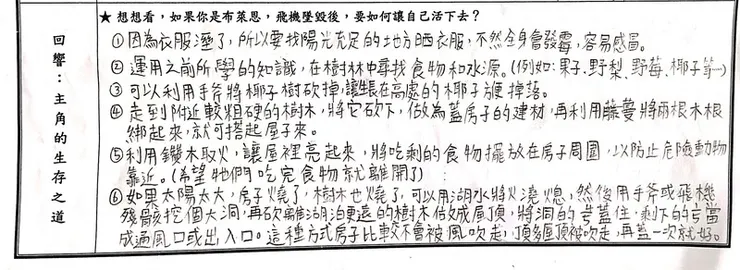 回響：主角的生存之道
★ 想想看，如果你是布萊恩，飛機墜毀後，要如何讓自己活下去？
①因為衣服溼了，所以要找陽光充足的地方晒衣服，不然全身會發霉，容易感冒。
②運用之前所學的知識，在樹林中尋找食物和水源。(例如：果子、野梨、野莓、椰子等…)
③可以利用手斧將椰子樹砍掉，讓生長在高處的椰子方便掉落。
④走到附近較粗硬的樹木，將它砍下，做為蓋房子的建材，再利用藤蔓將兩根木根
綁起來，就可搭起屋子來。
⑤利用鑽木取火，讓屋裡亮起來，將吃剩的食物擺放在房子周圍，以防止危險動物
靠近。(希望牠們吃完食物就離開了)
⑥如果太陽太大，房子燒了，樹木也燒了，可以用湖水將火澆熄，然後用手斧或飛機
殘骸挖個大洞，再砍離湖泊更遠的樹木做成屋頂，將洞的蓋住，剩下的當
成通風口或出入口。這種方式房子比較不會被風吹走，頂多屋頂被吹走，再蓋一次就好。